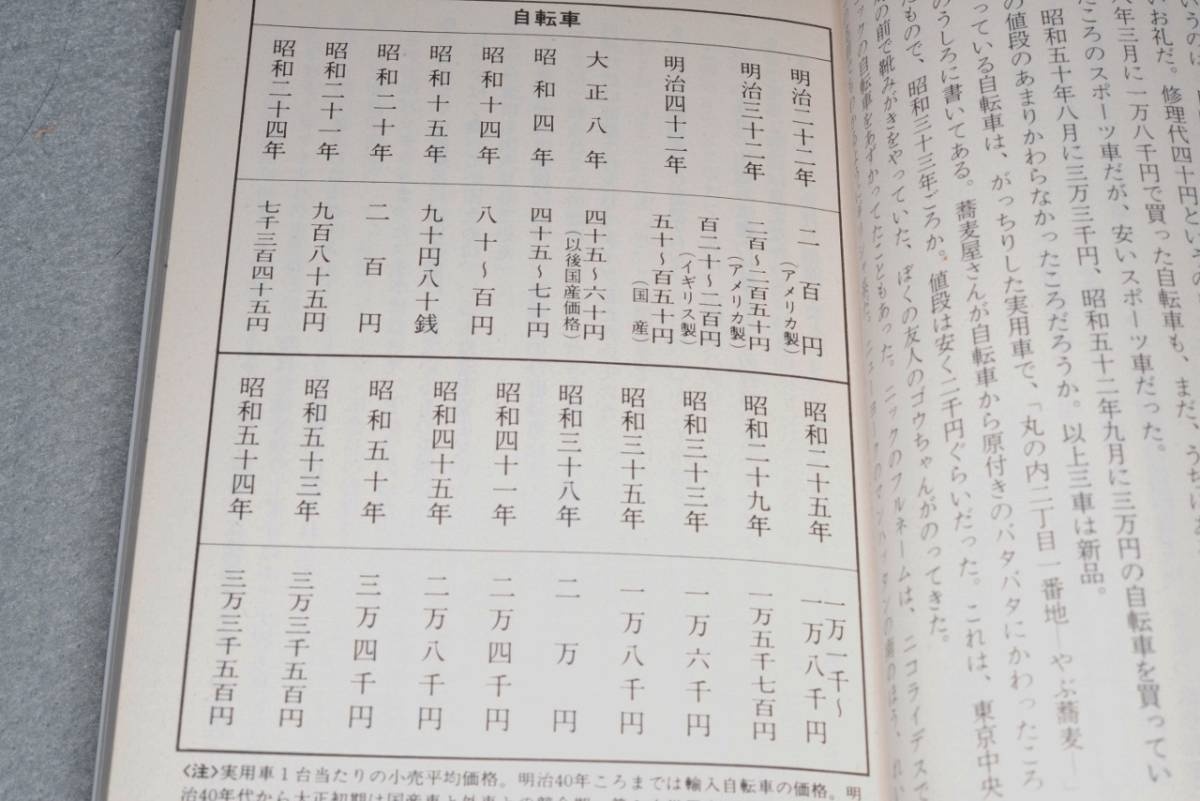 いお礼だ。修理代四十円という
年三月に一万八千円で買った自転車も、まだ、うちに
ころのスポーツ車だが、安いスポーツ車だった。
昭和五十年八月に三万三千円、昭和五十二年九月に三万円の自転車を買ってい
の値段のあまりかわらなかったころだろうか。以上三車は新品。
っている自転車は、がっちりした実用車で、「丸の内二丁目一番地―やぶ蕎麦―」
のうしろに書いてある。蕎麦屋さんが自転車から原付きのバタバタにかわったころ
たもので、昭和三十三年ごろか。値段は安く二千円ぐらいだった。これは、東京中央
の前で靴みがきをやっていた、ぼくの友人のゴウちゃんがのってきた。
ックの自転車をあずかってたこともあった。ニックのフルネームは、ニコライデスで
ニューヨークのマンハッタンの
自転車
明治二十二年 二百円(アメリカ製)
明治三十二年 二百〜二百五十円(アメリカ製)
百二十〜二百円(イギリス製)
明治四十二年 五十〜百五十円(国産)
大正八年 四十五〜六十円(以後国産価格)
昭和四年 四十五〜七十円
昭和十四年 八十〜百円
昭和十五年 九十円八十銭
昭和二十年 二百円
昭和二十一年 九百八十五円
昭和二十四年 七千三百四十五円
昭和二十五年 一万一千〜一万八千円
昭和二十九年 一万五千七百円
昭和三十三年 一万六千円
昭和三十五年 一万八千円
昭和三十八年 二万円
昭和四十一年 二万四千円
昭和四十五年 二万八千円
昭和五十年 三万四千円
昭和五十三年 三万三千五百円
昭和五十四年 三万三千五百円
〈注〉実用車1台当たりの小売平均価格。明治40年ころまでは輸入自転車の価格。明
治40年代から大正初期は国産車と外車との競合期。